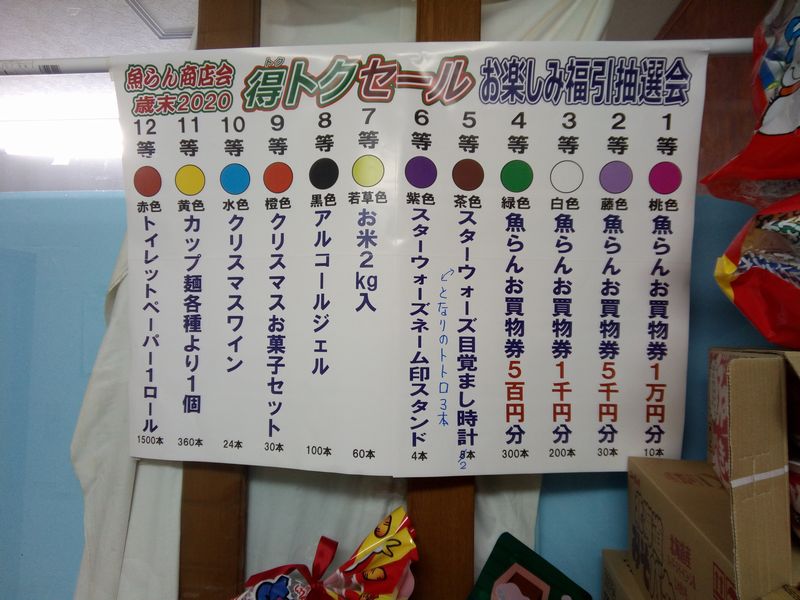 魚らん商店会
歳末2020
トク
得トクセール
お楽しみ福引抽選会
1等
桃色
魚らんお買物券1万円分
10本
2等
藤色
魚らんお買物券5千円分
30本
3等
白色
魚らんお買物券1千円分
200本
4等
緑色
魚らんお買物券5百円分
300本
5等
茶色
スターウォーズ目覚まし時計
2本
となりのトトロ3本
6等
紫色
スターウォーズネーム印スタンド
4本
7等
若草色
お米2kg入
60本
8等
黒色
アルコールジェル
100本
9等
橙色
クリスマスお菓子セット
30本
10等
水色
クリスマスワイン
24本
11等
黄色
カップ麺各種より1個
360本
12等
赤色
トイレットペーパー1ロール
1500本